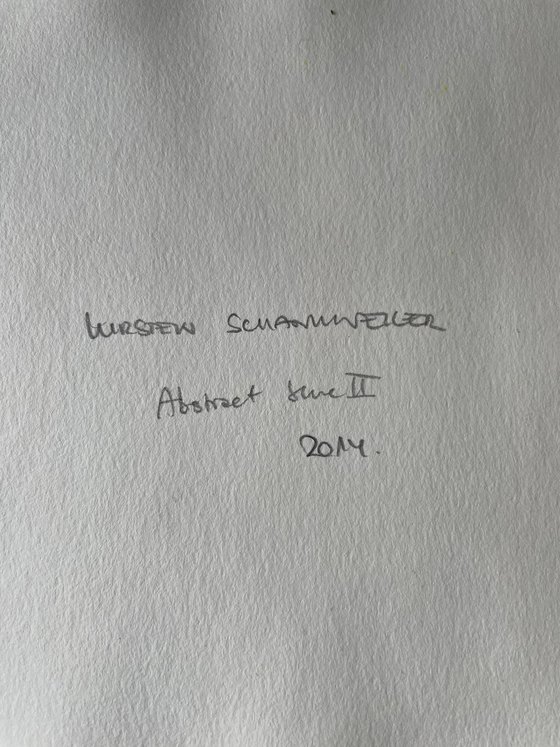 KIRSTEN SCHANNWEILER
Abstract II
2014.